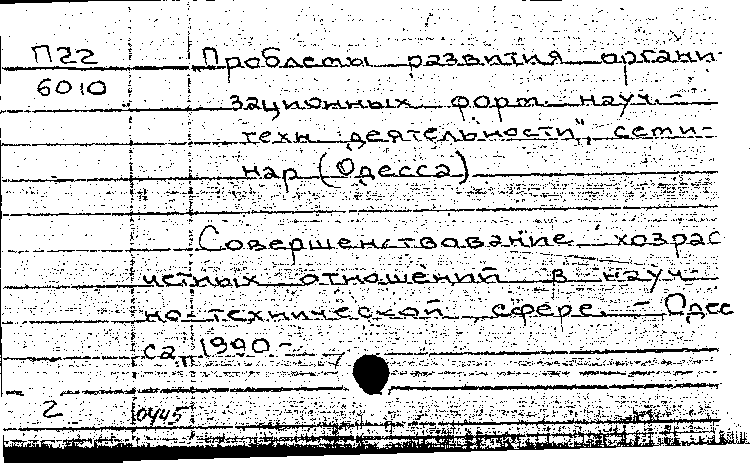 П22 Проблемы развития органи-
6010 зационных форм науч.-
техн деятельности", семи-
нар (Одесса)
Совершенствование хозрас
четных отношений в науч-
но-технической сфере. - Одес
са, 1990 -
2 0445